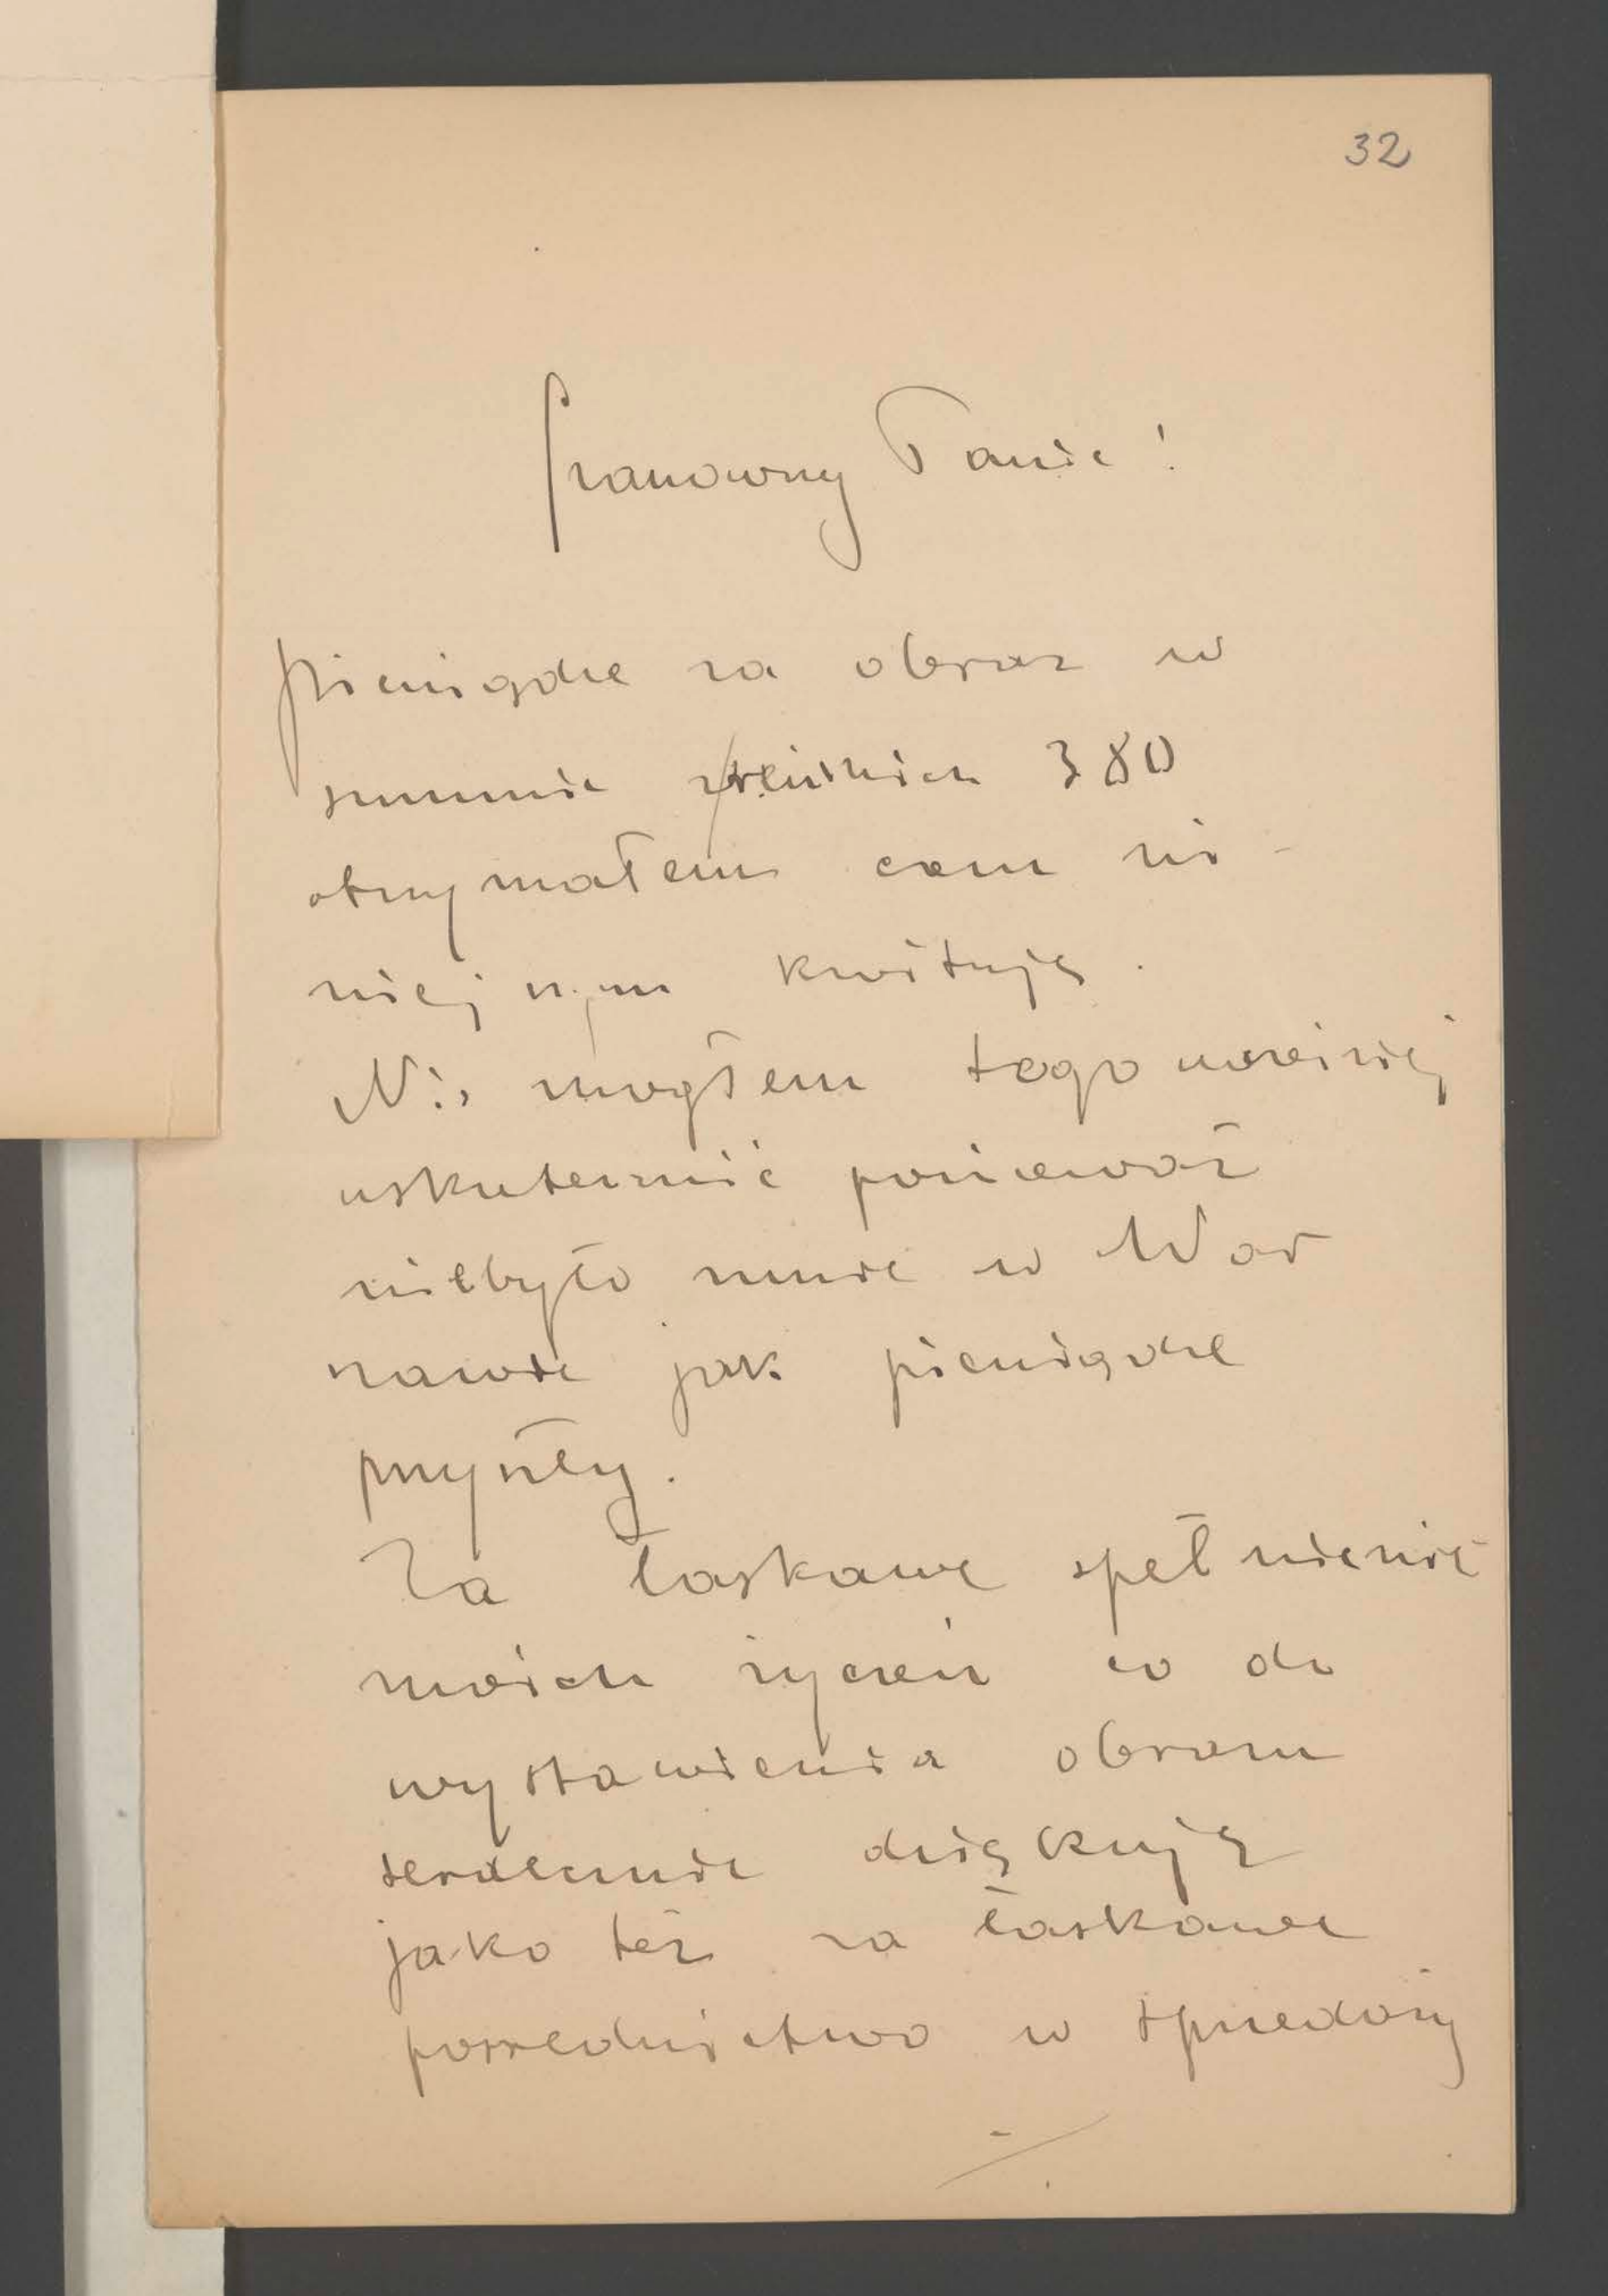 32
Szanowny Panie!
Pieniądze za obraz w
summie reńskich 380
otrzymałem com ni-
niejszym kwituję.
Nie mogłem tego wcześniej
uskutecznić ponieważ
niebyło mnie w War
szawie jak pieniądze
przyszły.
Za łaskawe spełnienie
moich życzeń co do
wystawienia obrazu
serdecznie dziękuję
jako też za łaskawe
posrednictwo w sprzedaży